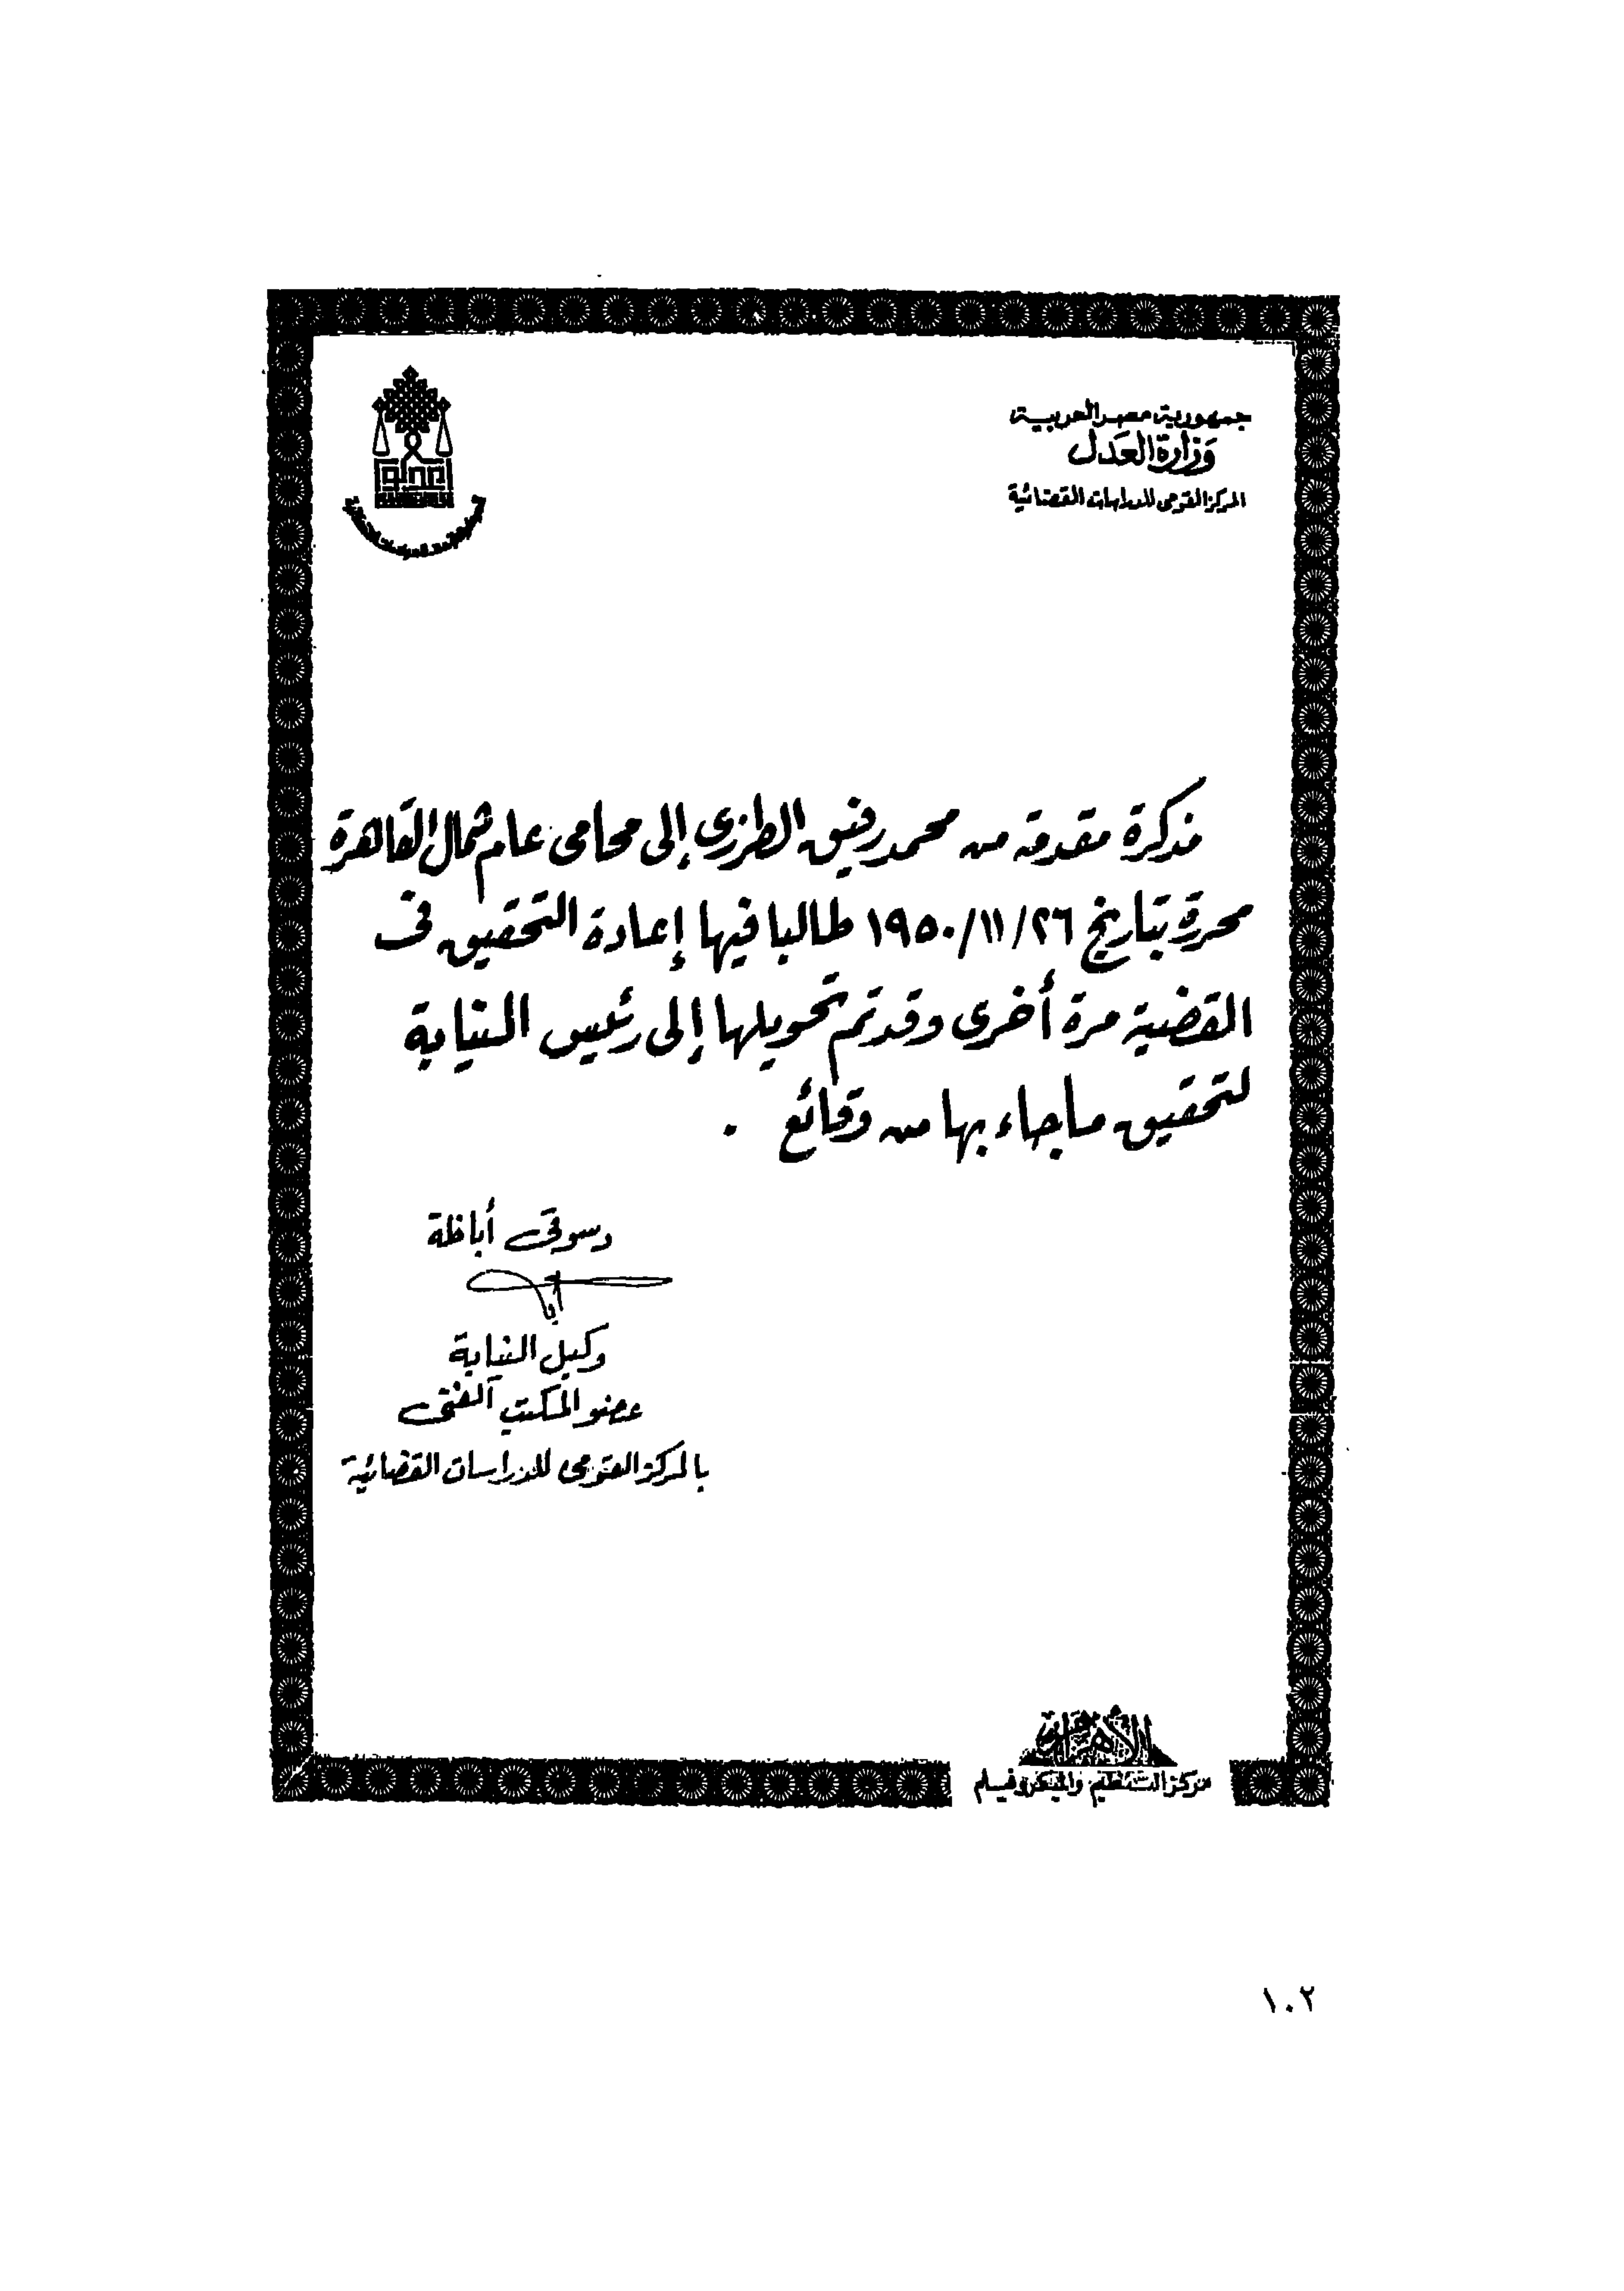 جمهورية مصر العربية
وزارة العدل
المركز القومى للدراسات القضائية
مذكرة مقدمة من محمد رفيق الطرزى إلى محامى عام شمال القاهرة
محررة بتاريخ ٢٦/١١/١٩٥٠ طالبا فيها إعادة التحقيق فى
القضية مرة أخرى وقد تم تحويلها إلى رئيس النيابة
لتحقيق ما جاء بها من وقائع .
دسوقى أباظة
وكيل النيابة
عضو المكتب الفنى
بالمركز القومى للدراسات القضائية
الأهرام
مركز التنظيم والميكروفيلم
١٠٢